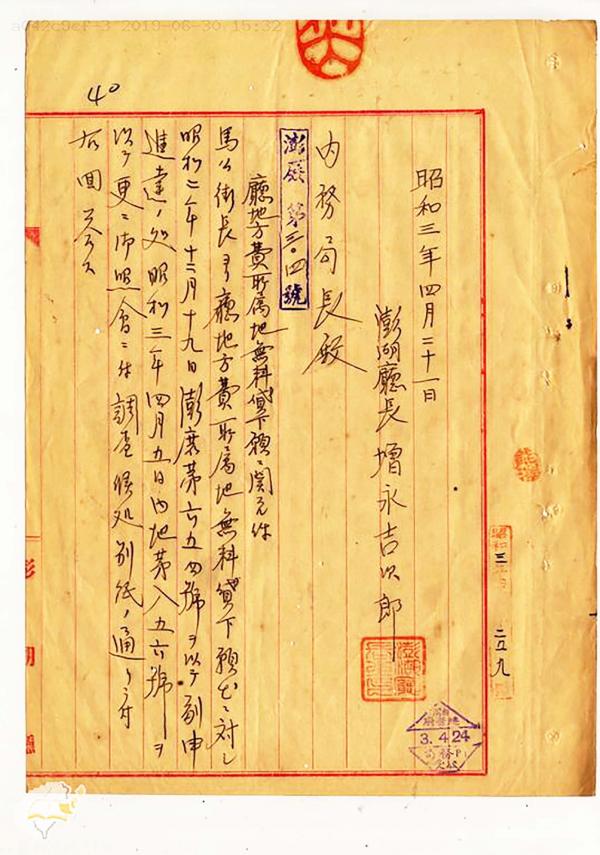 昭和三年四月二十一日
澎湖廳長 増永吉次郎
内務局長殿
澎廳第三〇四號
廳地方費所属地無料貸下願ニ関スル件
馬公街長ヨリ廳地方費所属地無料貸下願出ニ対シ
昭和二年十二月十九日澎庶第六五四號ヲ以テ副申
進達ノ処昭和三年四月五日内地第八五六號ヲ
以テ更ニ御照會ニ付調査候処別紙ノ通リニ付
右回答ス
40
3.4.24
二五九